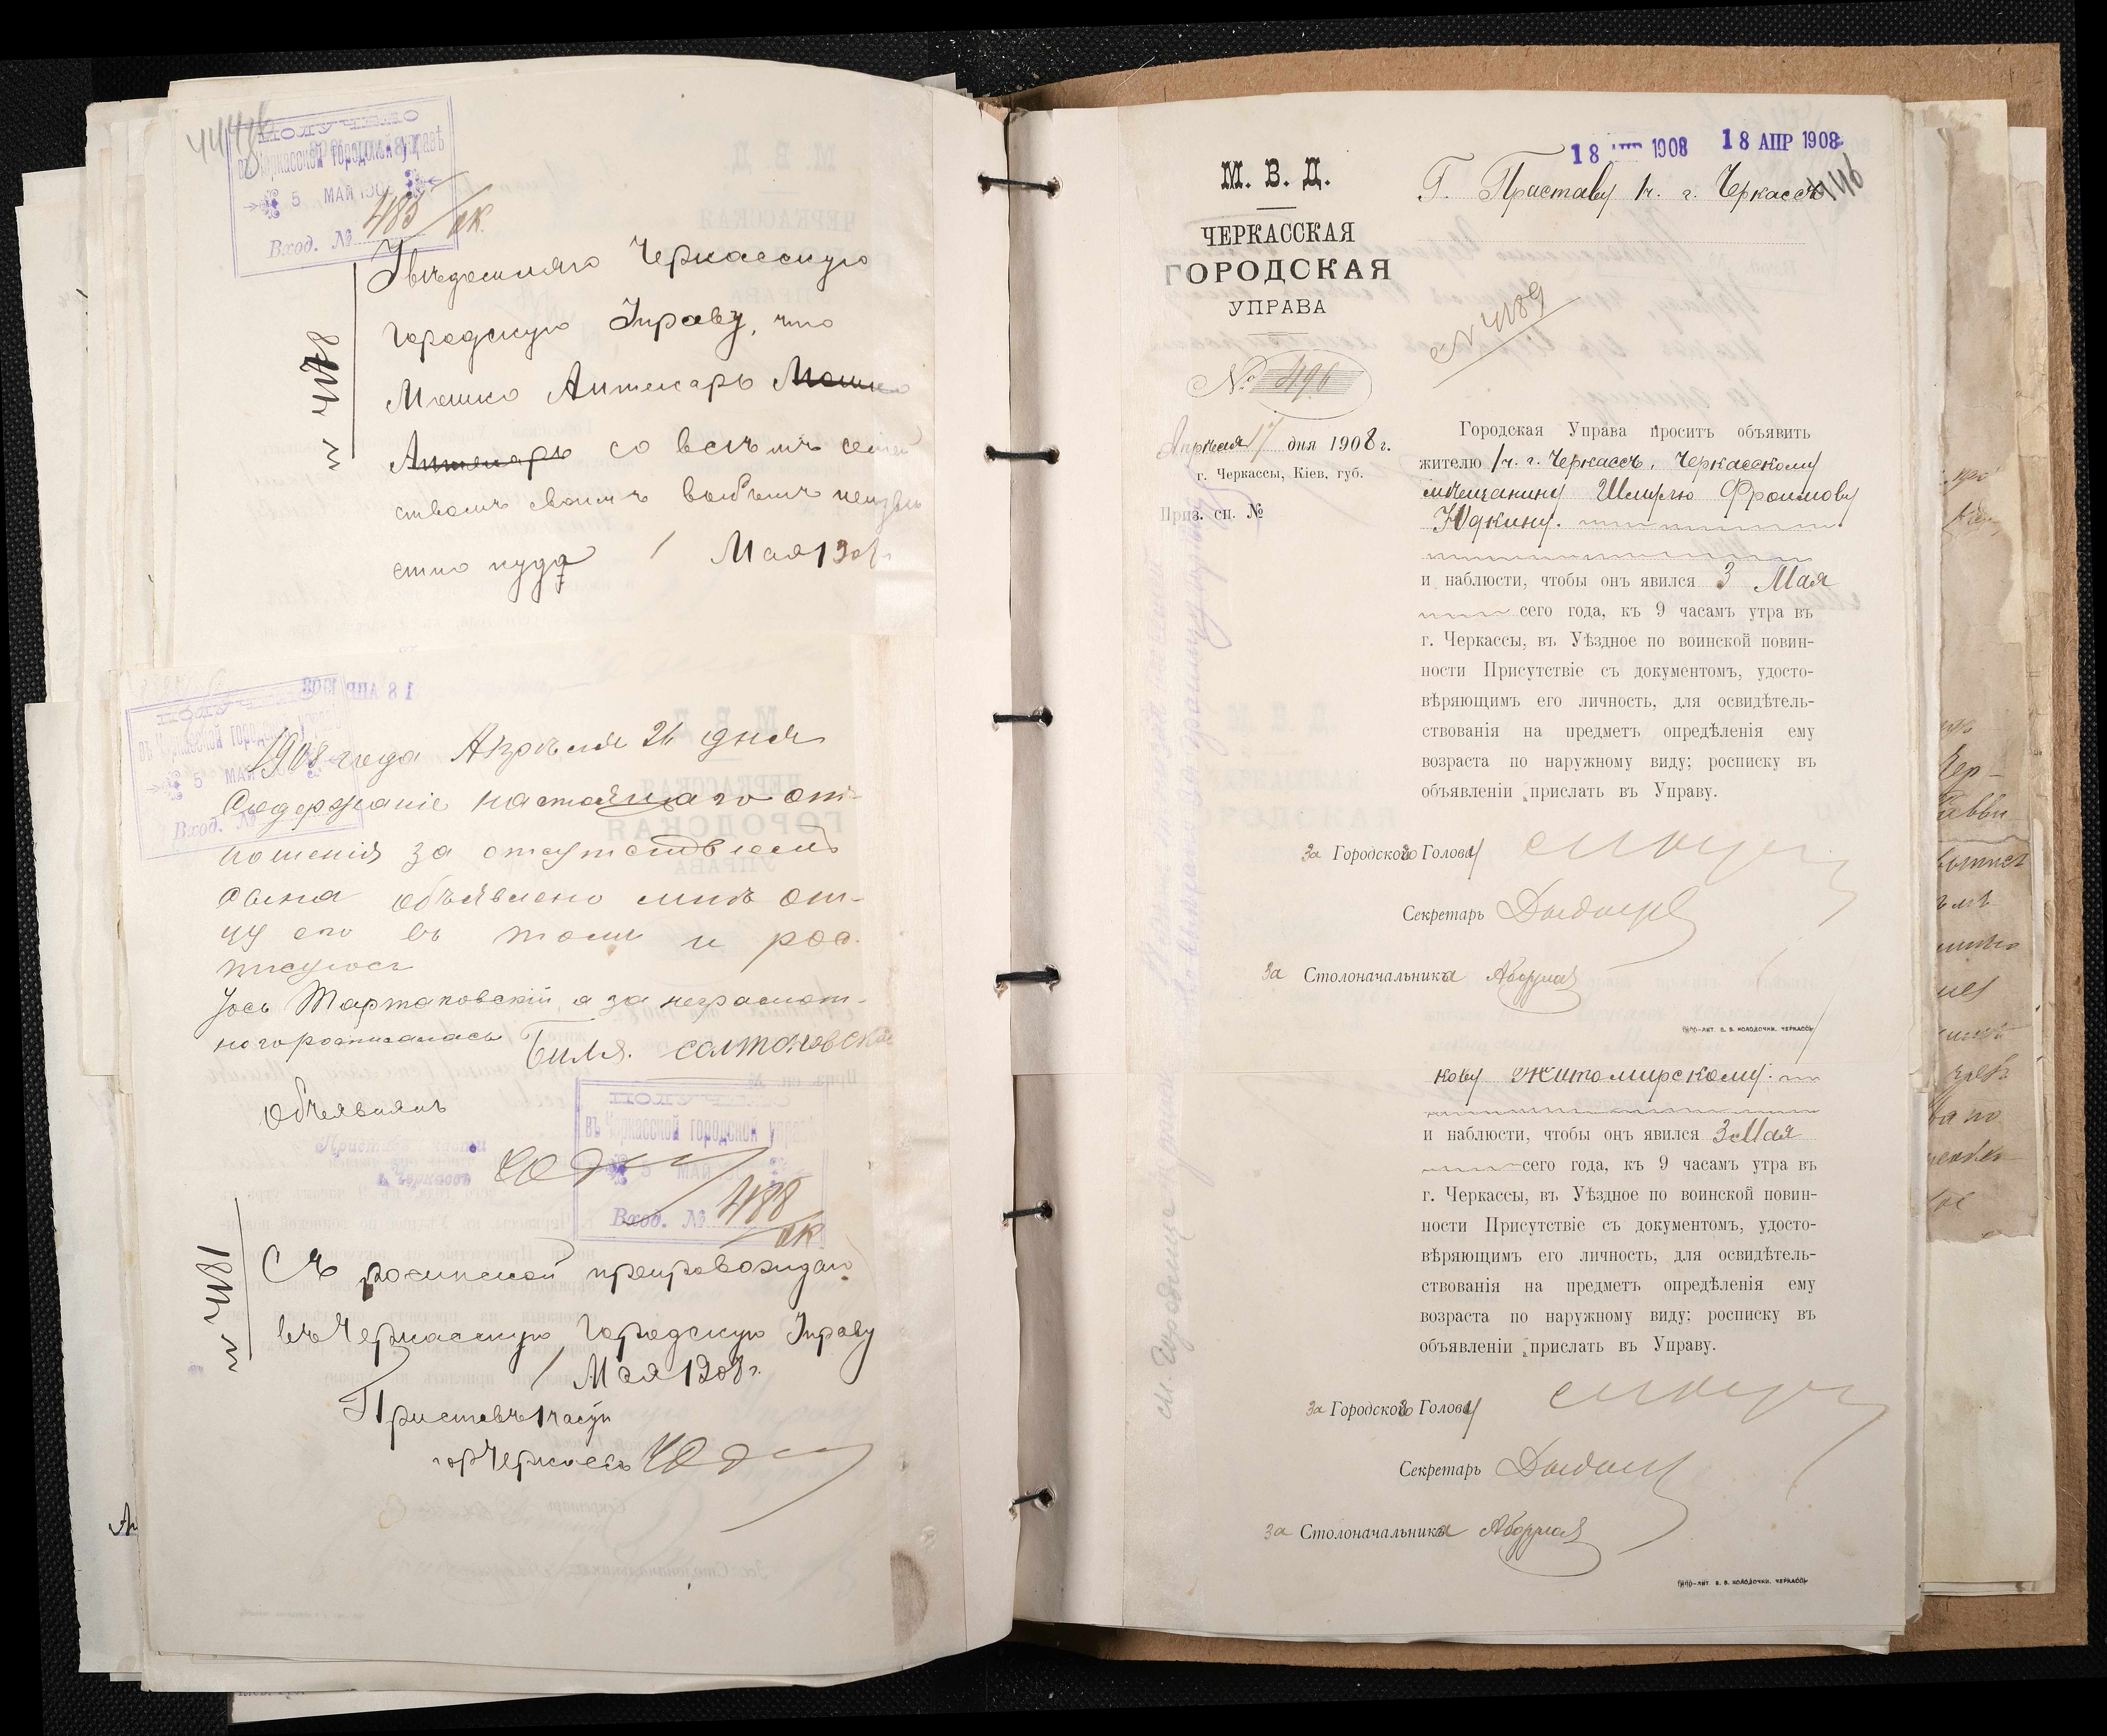 въ Черкасской городской управѣ
5 МАЙ 1908
Вход. № 485
№ 4178
Увѣдомляю Черкасскую
Городскую Управу, что
Мошко Аптекарь Мошко
Аптекарь со всѣмъ семей
ствомъ своимъ выбылъ неизвѣ
стно куда 1 Мая 1908 г.
18 АПР 1908
въ Черкасской городской управѣ
5 МАЙ
Вход. №
1908 года Апрѣля 26 дня
Содержаніе настоящаго от-
ношенія за отсутствіемъ
сына объявлено мнѣ от-
цу его въ томъ и рос-
писуюсь
Іось Тартаковскій, а за неграмот-
ного росписалась
Объявилъ
Приставъ 1 части
г. Черкассъ
въ Черкасской городской управѣ
5 МАЙ
Вход. № 488
№ 4181
Съ роспиской препровождаю
въ Черкасскую Городскую Управу
1 Мая 1908 г.
Приставъ 1 части
гор Черкассъ
18 АПР 1908 18 АПР 1908
М. В. Д.
ЧЕРКАССКАЯ
ГОРОДСКАЯ
УПРАВА
№ 496
Апрѣля 17 дня 1908 г.
г. Черкассы, Кіев. губ.
Приз. сп. №
Г. Приставу 1 ч. г. Черкассъ
446
№ 4189
Городская Управа проситъ объявить
жителю 1 ч. г. Черкассъ, Черкасскому
мѣщанину Шмулю Фроимову
Юдкину.
и наблюсти, чтобы онъ явился 3 Мая
сего года, къ 9 часамъ утра въ
г. Черкассы, въ Уѣздное по воинской повин-
ности Присутствіе съ документомъ, удосто-
вѣряющимъ его личность, для освидѣтель-
ствованія на предметъ опредѣленія ему
возраста по наружному виду; росписку въ
объявленіи прислать въ Управу.
За Городского Голову
Секретарь
За Столоначальника
ТИПО-ЛИТ. В. В. КОЛОДОЧКИ. ЧЕРКАССЫ
кову Житомирскому.
и наблюсти, чтобы онъ явился 3 Мая
сего года, къ 9 часамъ утра въ
г. Черкассы, въ Уѣздное по воинской повин-
ности Присутствіе съ документомъ, удосто-
вѣряющимъ его личность, для освидѣтель-
ствованія на предметъ опредѣленія ему
возраста по наружному виду; росписку въ
объявленіи прислать въ Управу.
За Городского Голову
Секретарь
За Столоначальника
ТИПО-ЛИТ. В. В. КОЛОДОЧКИ. ЧЕРКАССЫ